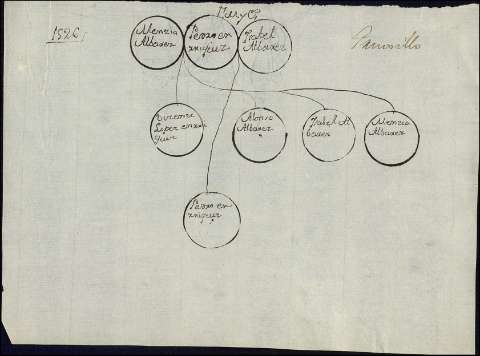 1526,
Mencia
Albarez
Pedro en
rriquez
Isabel
Albarez
Lopez enrri
quez
Alonso
Albarez
Isabel Al
barez
Mencia
Albarez
Pedro en
rriquez